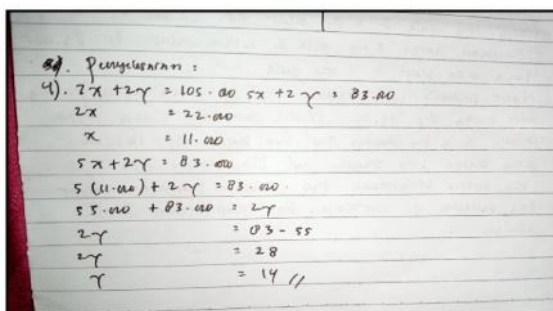 Penyelesaian :
4). 7x + 2y = 105.000 5x + 2y = 83.000
2x = 22.000
x = 11.000
5x + 2y = 83.000
5 (11.000) + 2y = 83.000
55.000 + 83.000 = 2y
2y = 83 - 55
2y = 28
y = 14 //